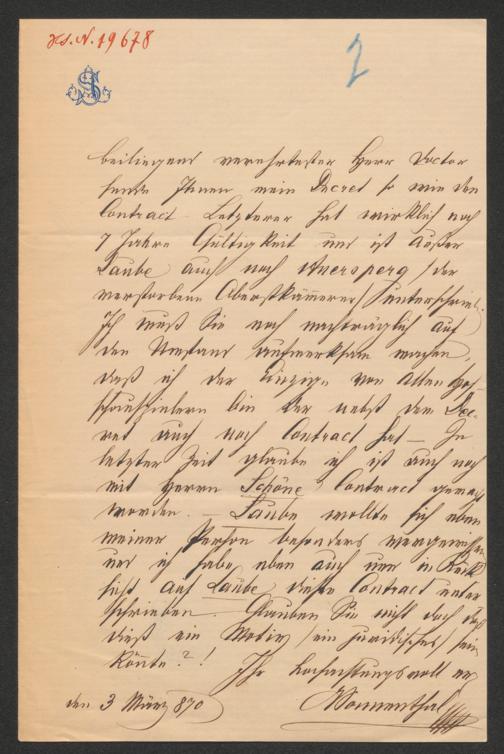 Hs. N. 19678
2
beiliegend verehrtester Herr Doctor
sende Ihnen mein Decret so wie den
Contract – Letzterer hat wirklich noch
7 Jahre Gültigkeit und ist außer
Laube auch noch Auersperg / der
verstorbene Oberstkämerer / unterschrieb.
Ich muß Sie noch nachträglich auf
den Umstand aufmerksam machen,
daß ich der Einzige von allen Hof-
schauspielern bin der nebst dem Dec-
ret auch noch Contract hat – In
letzter Zeit glaube ich ist auch noch
mit Herrn Schöne Contract gemacht
worden. – Laube wollte sich eben
meiner Person besonders vergewissern
und ich habe eben auch nur in Rück-
sicht auf Laube diesen Contract unter
schrieben – Glauben Sie nicht doch daß
dieß ein Motiv / ein juridisches / sein
könnte?! Ihr hochachtungsvoll erg
den 3 März 870 Sonnenthal